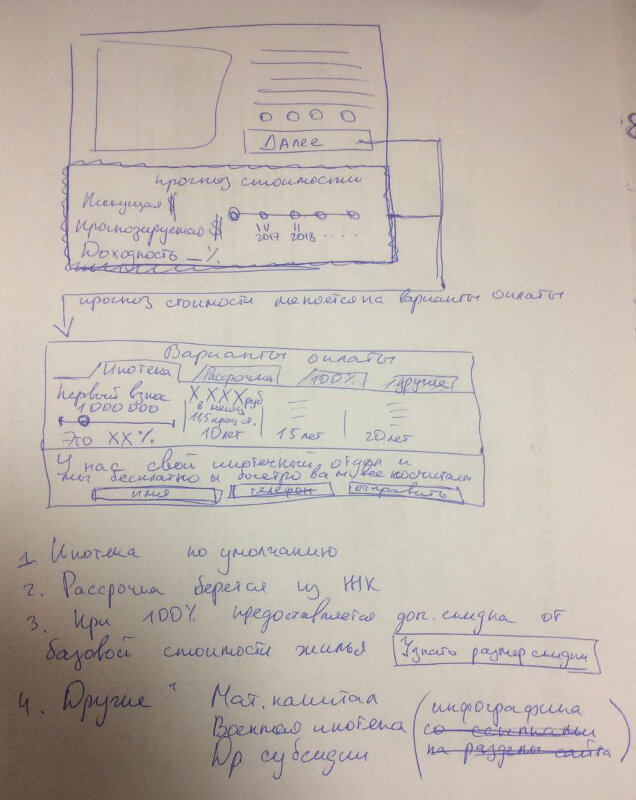 Далее
Прогноз стоимости
Текущая $
Прогнозируемая $
2017 2018 ....
Доходность _%
прогноз стоимости меняется на варианты оплаты
Варианты оплаты
Ипотека Рассрочка 100% Другие
Первый взнос
1000000
Это XX%
X.XXX руб
в месяц
11,5 проц ст.
10 лет
15 лет
20 лет
У нас свой ипотечный отдел и
мы бесплатно и быстро вам все посчитаем
имя телефон отправить
1. Ипотека по умолчанию
2. Рассрочка берется из ЖК
3. При 100% предоставляется доп. скидка от
базовой стоимости жилья Узнать размер скидки
4. Другие " Мат. капитал
Военная ипотека
Др субсидии
(инфографика
со ссылками
на разделы сайта)